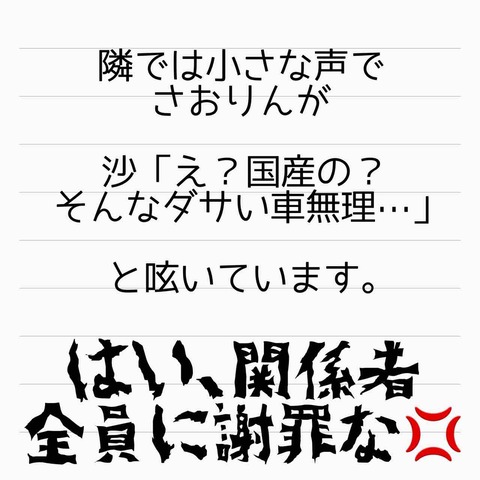 隣では小さな声で
さおりんが
沙「え？国産の？
そんなダサい車無理…」
と呟いています。
はい、関係者
全員に謝罪な💢